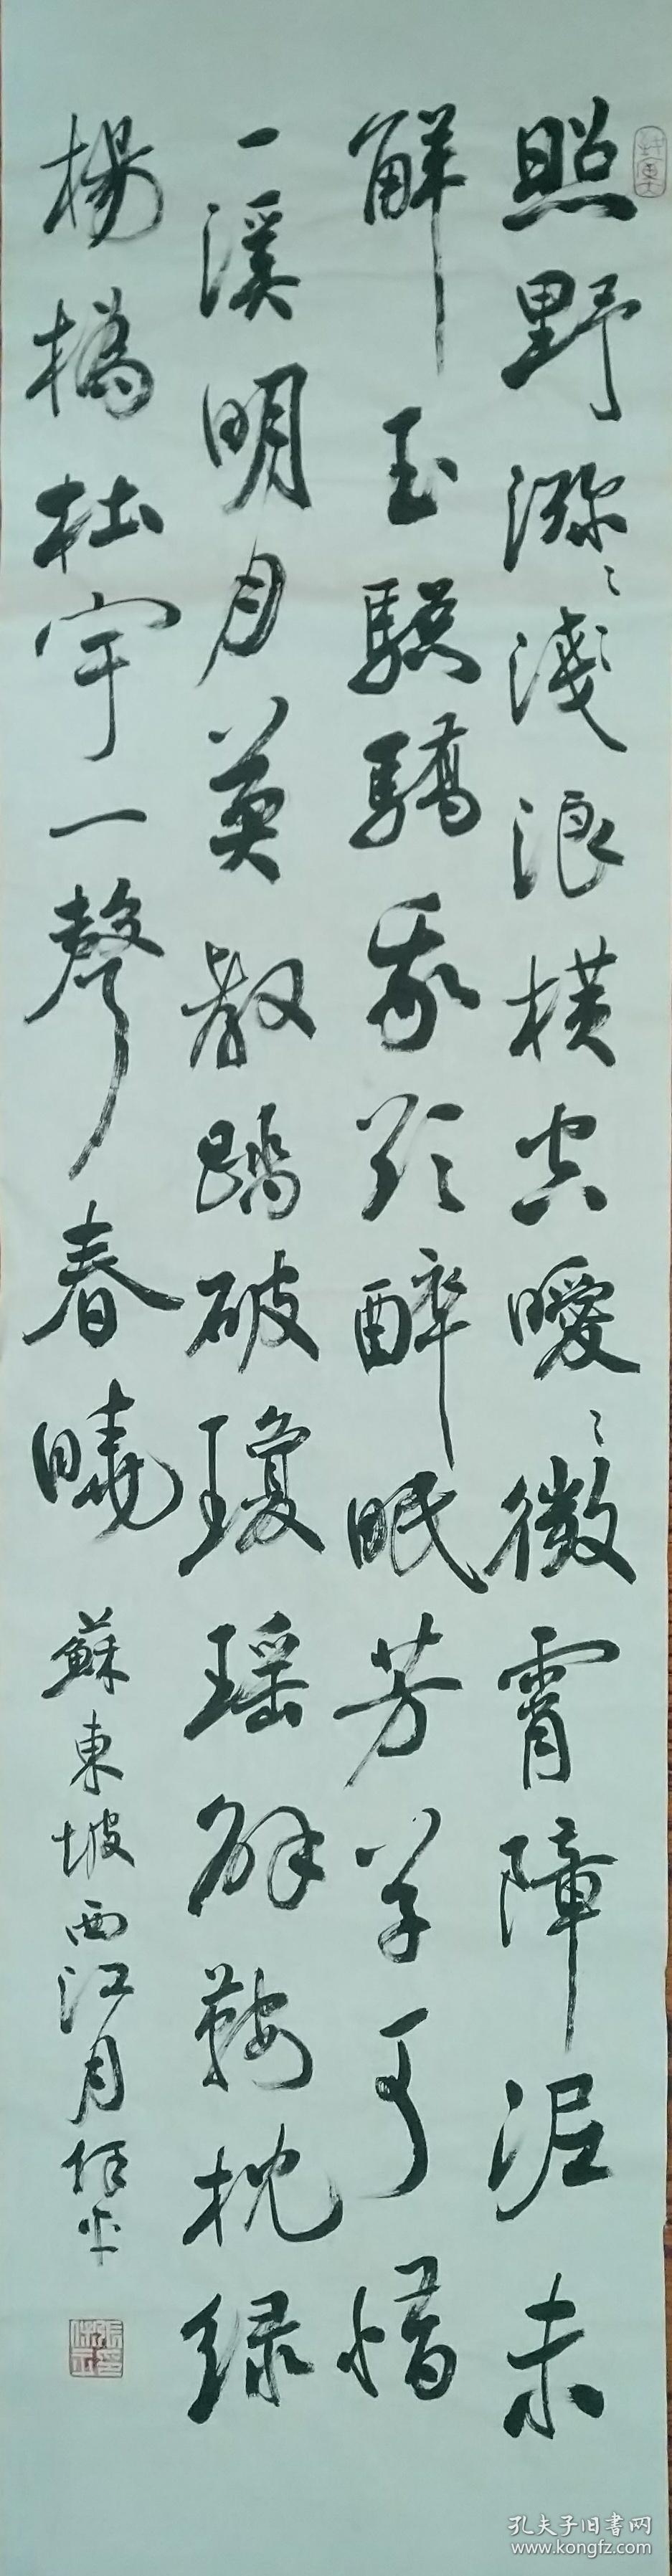 照野瀰〻淺浪橫空曖〻微霄障泥未
解玉驄驕我欲醉眠芳草可惜
一溪明月莫教踏破瓊瑤解鞍枕绿
楊橋杜宇一聲春曉
蘇東坡西江月
孔夫子旧書网
www.kongfz.com